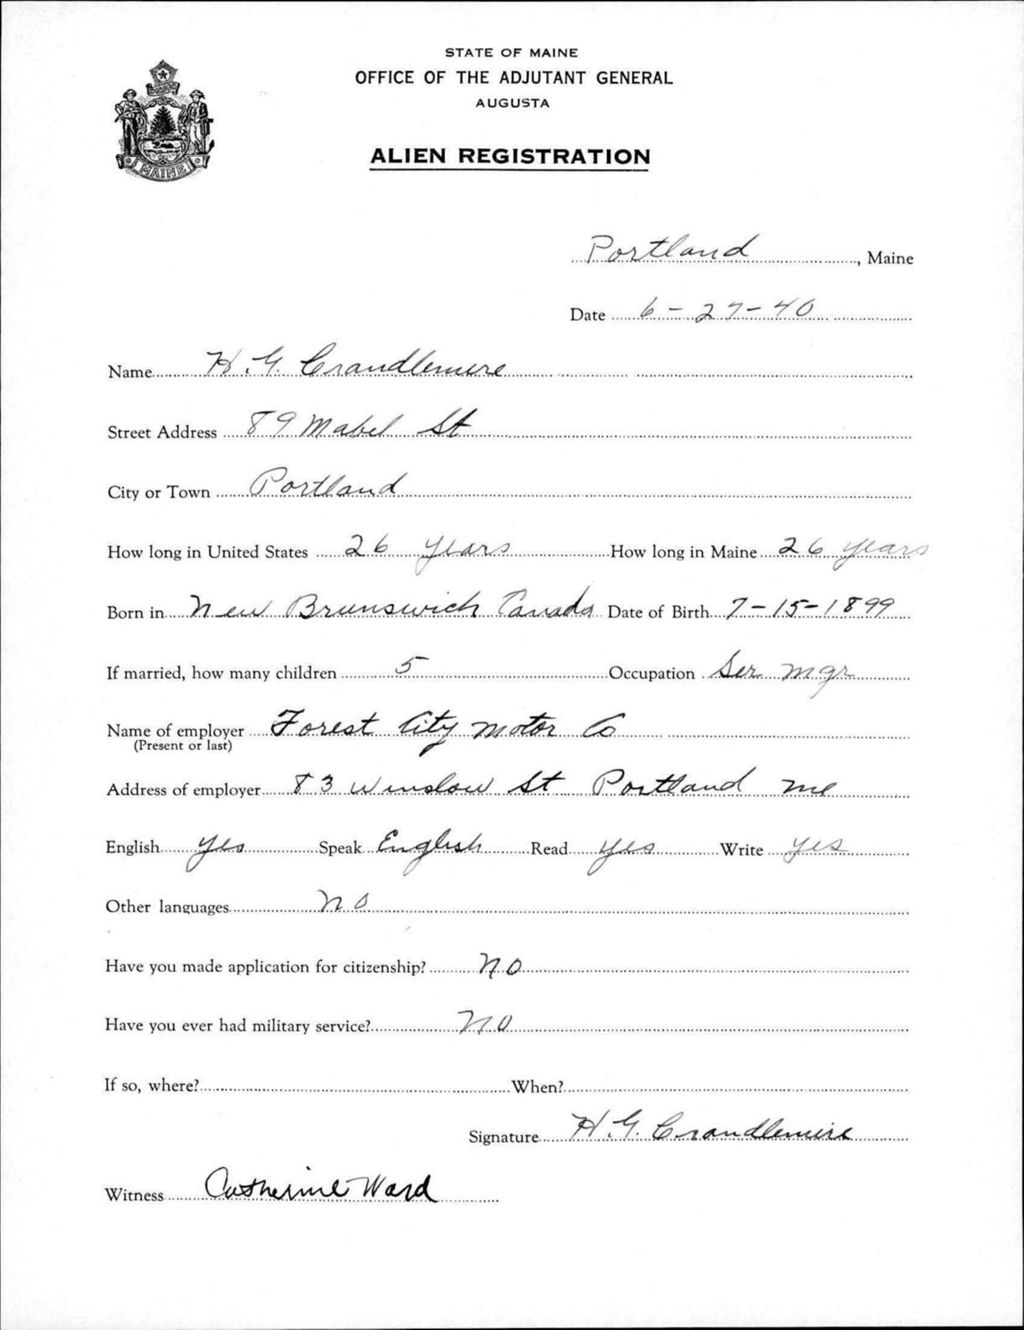 STATE OF MAINE
OFFICE OF THE ADJUTANT GENERAL
AUGUSTA
ALIEN REGISTRATION
MAINE
Portland, Maine
Date 6-27-40
Name H. G. Crandlemire
Street Address 89 Mabel St
City or Town Portland
How long in United States 26 years How long in Maine 26 years
Born in New Brunswick Canada Date of Birth 7-15-1899
If married, how many children 5 Occupation Ser. Mgr.
Name of employer Forest City Motor Co
(Present or last)
Address of employer 83 Winslow St Portland Me
English Yes Speak English Read Yes Write Yes
Other languages No
Have you made application for citizenship? No
Have you ever had military service? No
If so, where? When?
Signature H. G. Crandlemire
Witness Catherine Ward